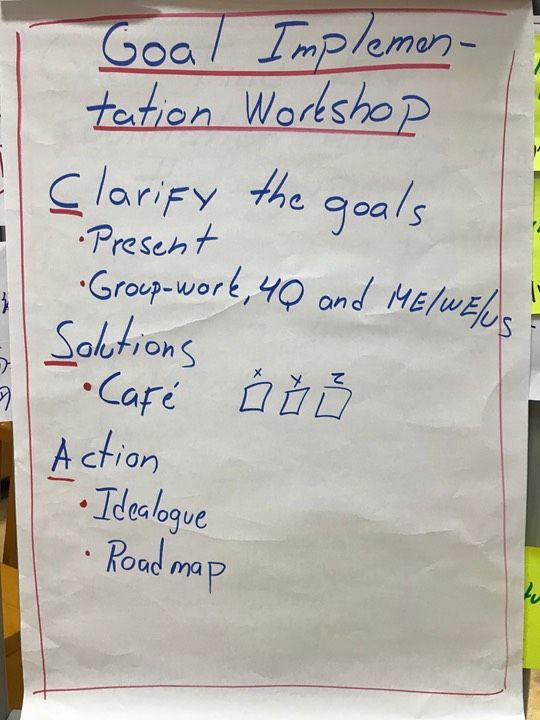 Goal Implemen-
tation Workshop
Clarify the goals
• Present
• Group-work, 4Q and ME/WE/US
Solutions
• Café x y z
Action
• Idealogue
• Roadmap